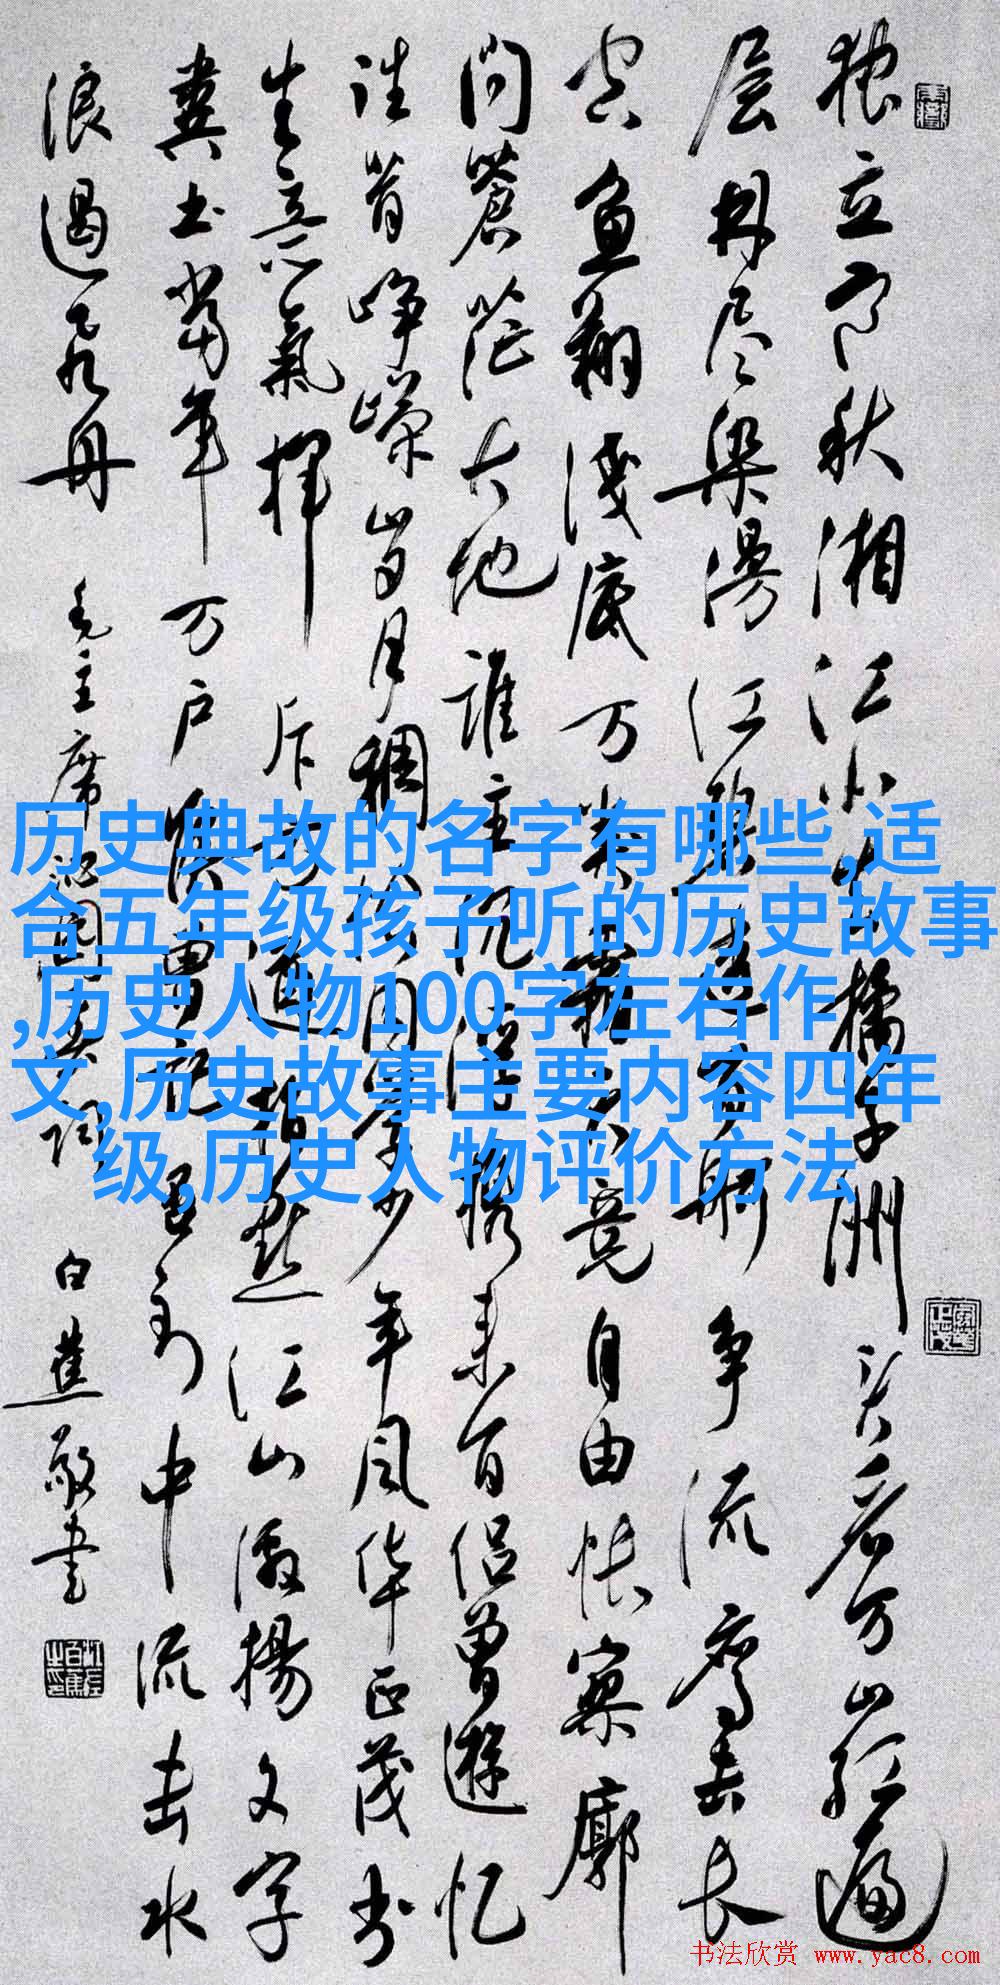 独立寒秋湘江北去橘子洲头看万山红遍
层林尽染漫江碧透百舸争流鹰击长
空鱼翔淺底万类霜天竞自由怅寥廓
问蒼茫大地誰主沉浮携来百侣曾遊忆
往昔峥嵘岁月稠恰同学少年风华正茂书
生意氣揮斥方遒指点江山激揚文字
粪土当年万户侯曾记否到中流击水
浪遏飞舟 毛主席沁园春词 白蕉敬书
历史典故的名字有哪些,适
合五年级孩子听的历史故事
,历史人物100字左右作
文,历史故事主要内容四年
级,历史人物评价方法
书法欣赏 www.yac8.com